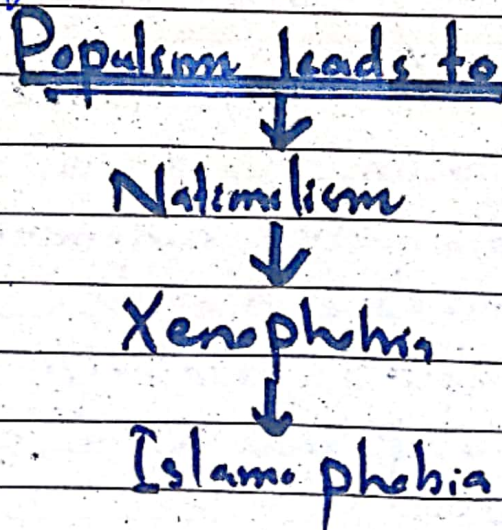 Populism leads to
Nationalism
Xenophobia
Islamophobia